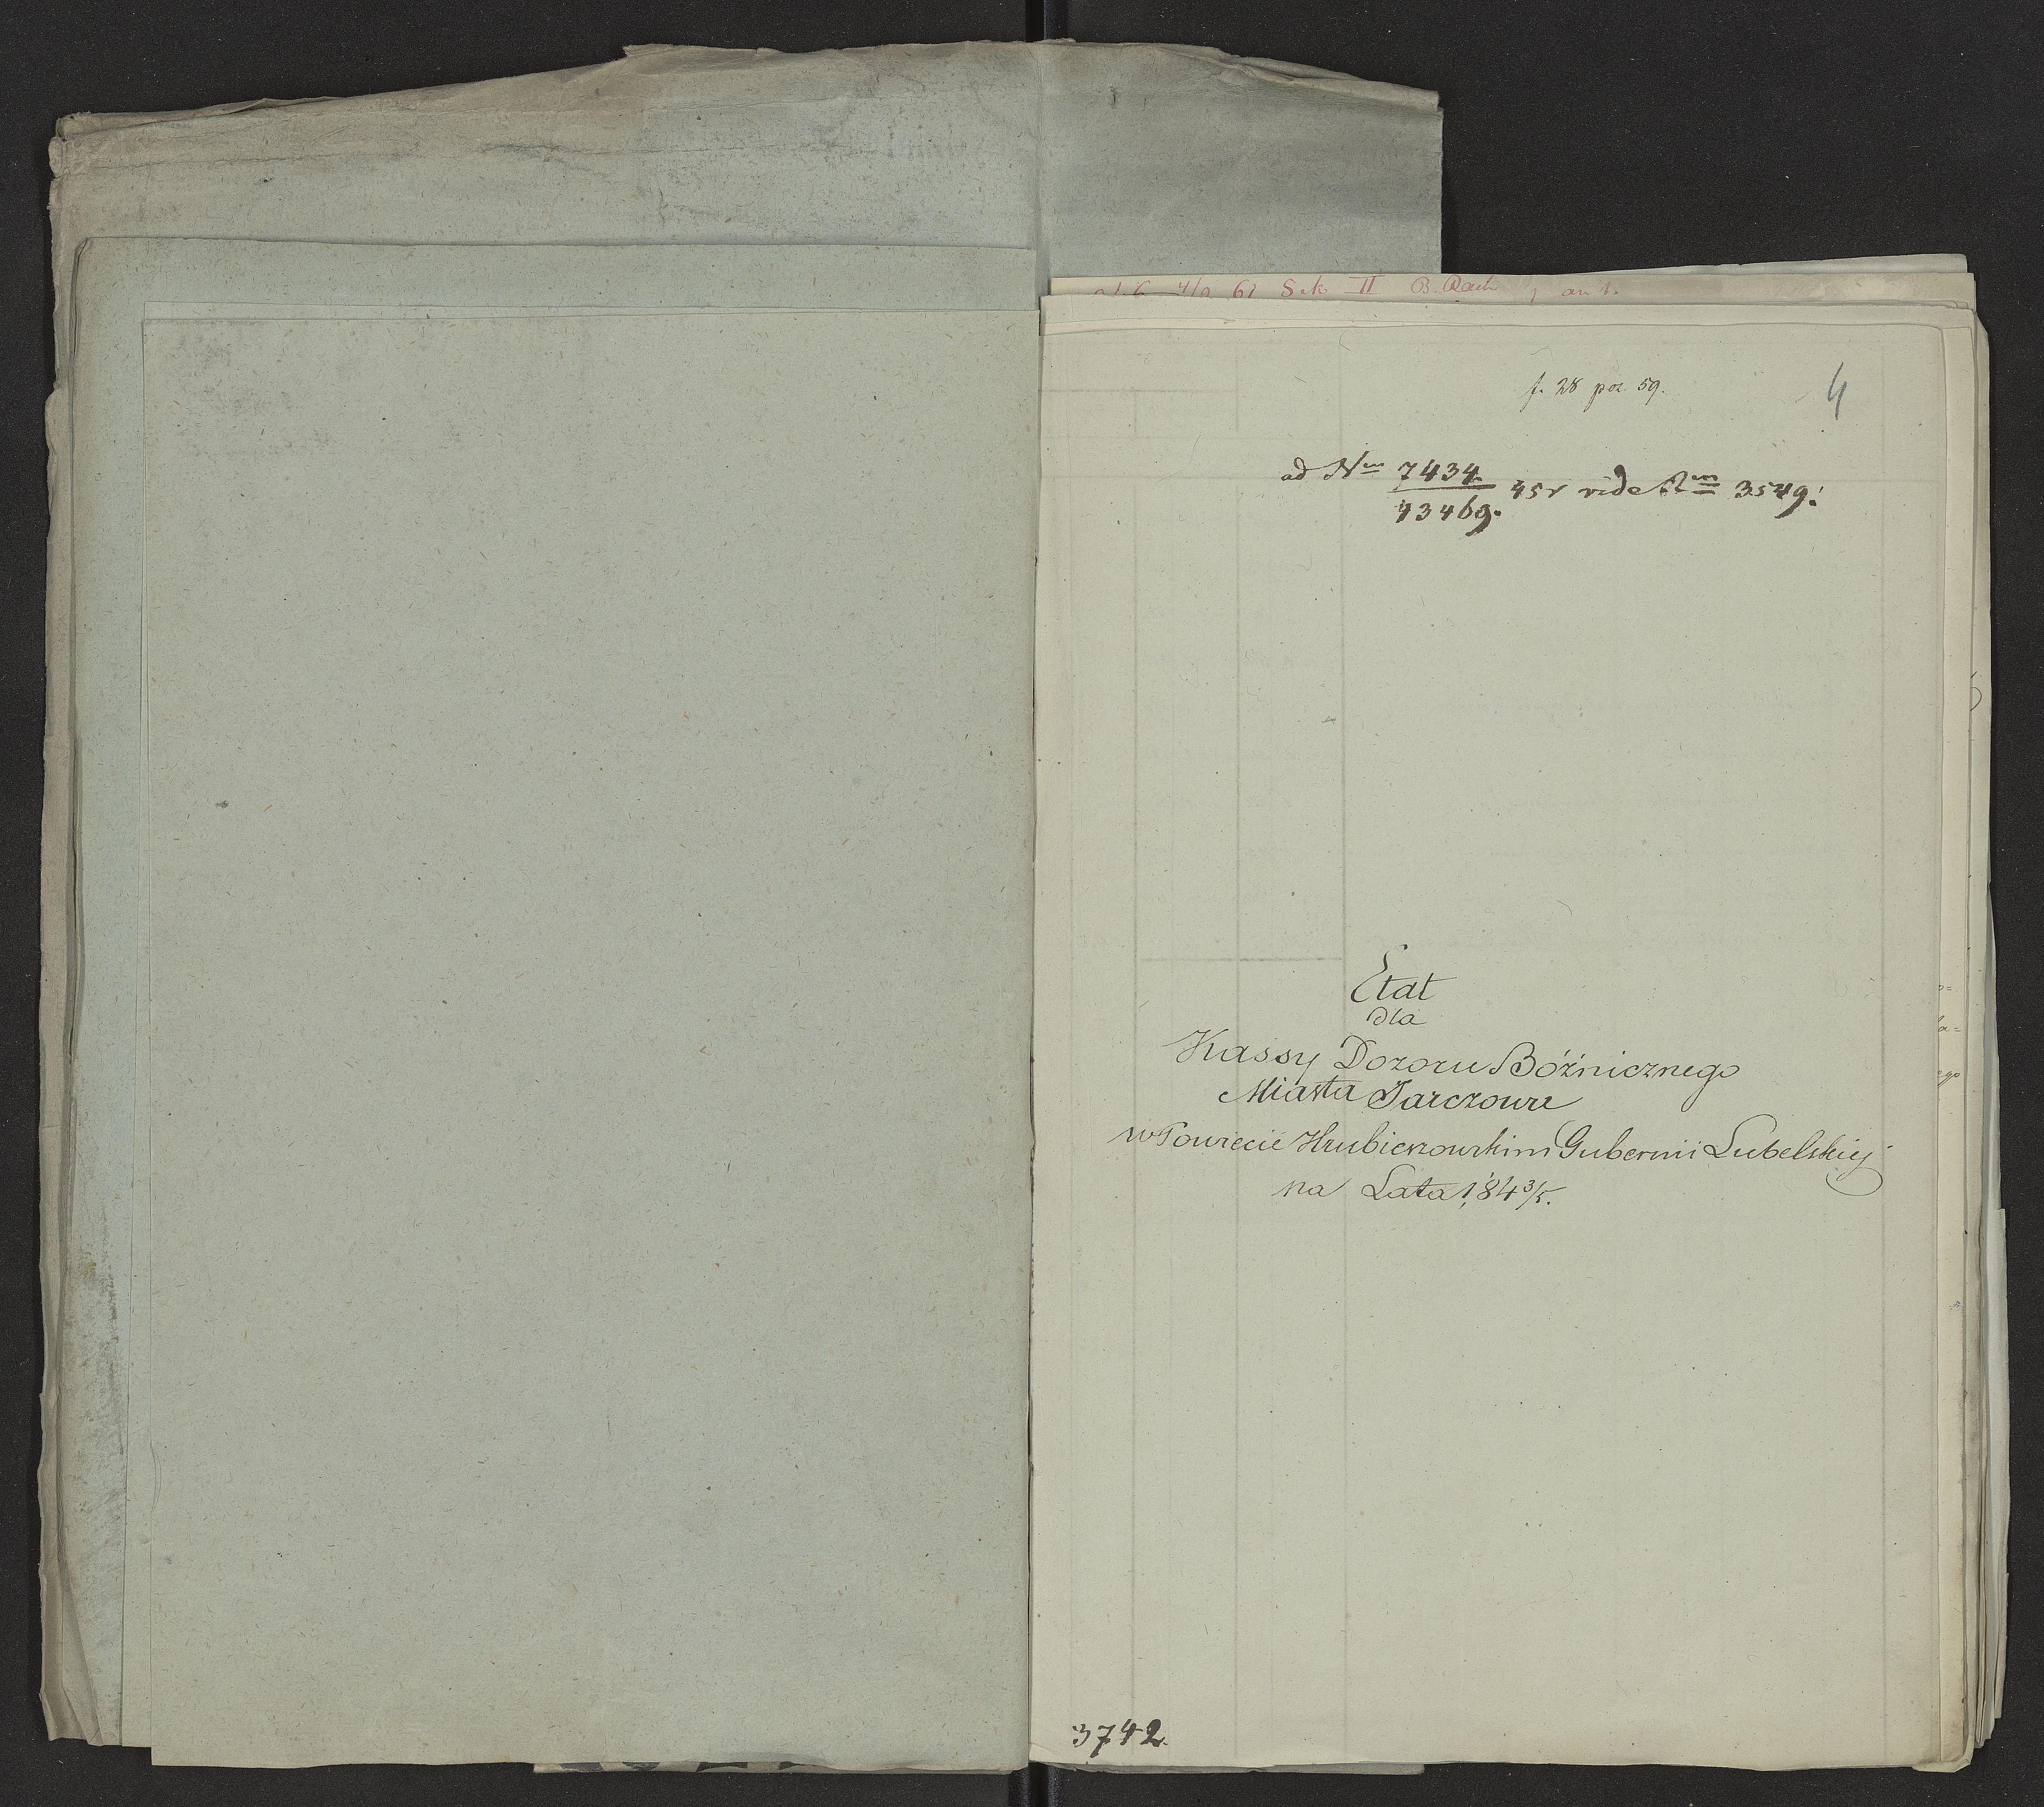 Sek II B. Rach
f. 28 poz. 59.
4
ad Nrm 7434/43469. 45r vide Nrm 3549.
Etat
dla
Kassy Dozoru Bóźnicznego
Miasta Tarczowa
w Powiecie Hrubieszowskim Gubernii Lubelskiej
na Lata 1843/5.
3742.